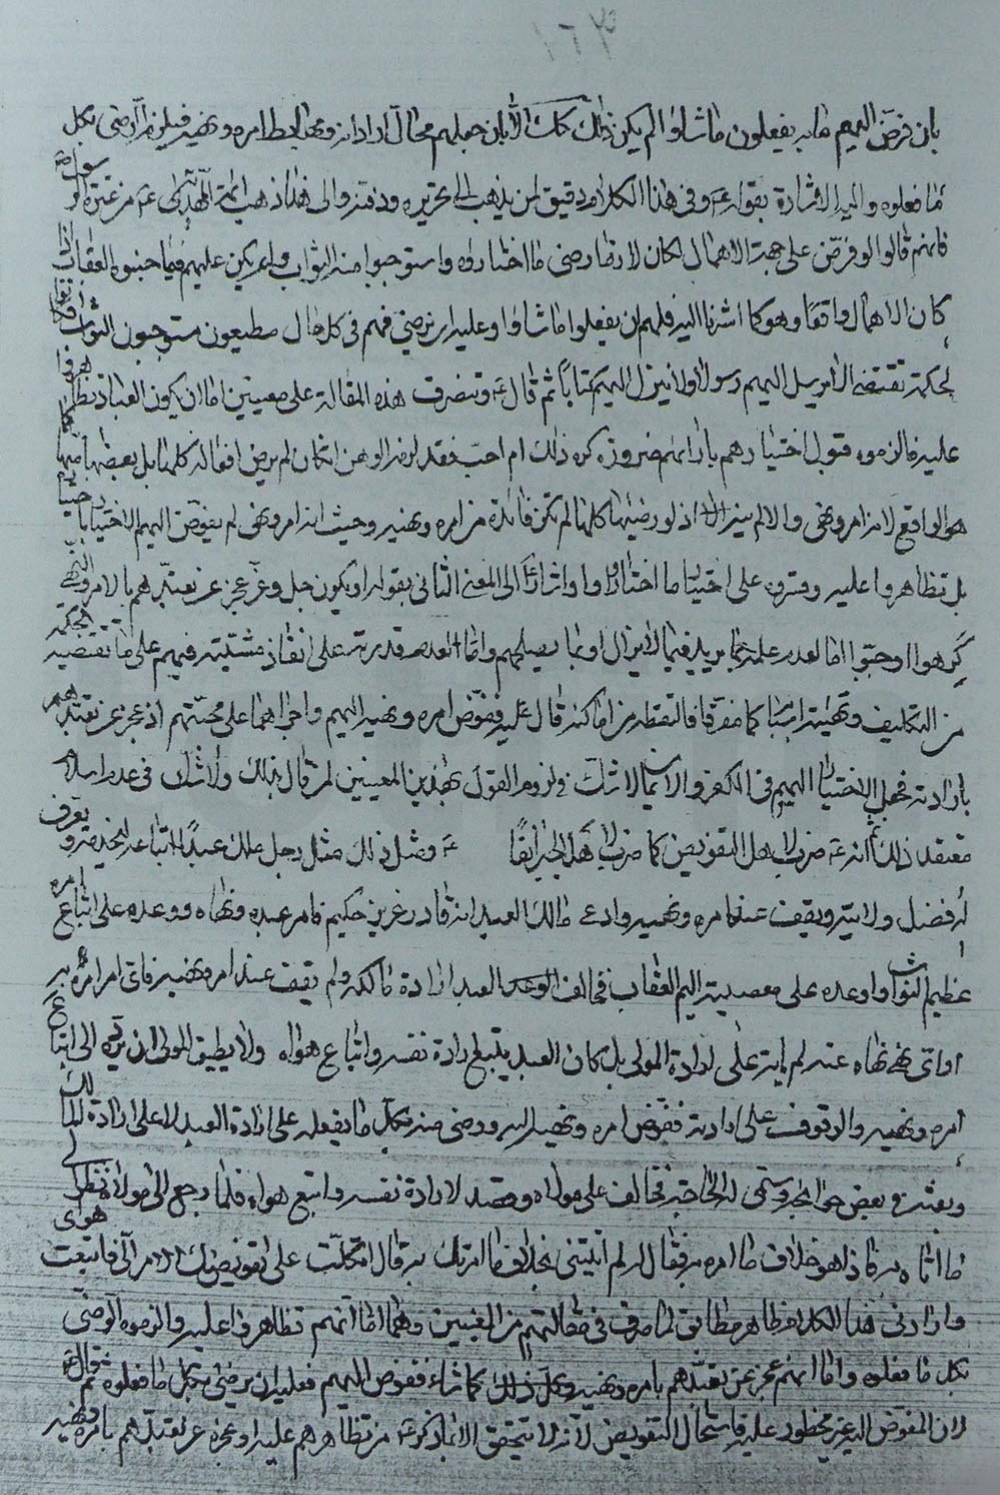 بان فوّض اليهم فانه يفعلون ما شاؤا لم يكن ذلك كذلك الا بان جعلهم محال ارادته ومحل امره ونهيه فيلزم الرضى بكل
ما فعلوه واليه الاشارة بقوله ع وفي هذا الكلام دقيق لمن يذهب الى تحريره ودقته والى هذا ذهب ائمة المهتدية ع من عترة الرسول ص
فانهم قالوا لو فوّض على جهة الاهمال لكان لازما رضى ما اختاروه واستوجبوا منه الثواب ولم يكن عليهم فيما جنبوه العقاب اذا
كان الاهمال واقعًا وهو كما اشرنا اليه فلهم ان يفعلوا ما شاؤا وعليه ان يرضى فهم في كل حال مطيعون مستوجبون الثواب
لحكمة تقتضي الا يرسل اليهم رسولا ولا ينزل اليهم كتابًا ثم قال ع وتنصرف هذه المقالة على معنيين اما ان يكون العباد تظاهروا
عليه فالزموه قبول اختيارهم بارائهم ضرورة كره ذلك ام احب فقد لزمه الوهن ان كان لم يرض افعالهم كلها بل بعضها
هو الواقع لانه امر ونهى والا لم اذ لو رضيها كلها لم تكن فائدة من امره ونهيه وحيث انه امر ونهى لم يفوض اليهم الاختيار
بل تظاهروا عليه وقسروه على اختيار ما اختاروا واشار الى المعنى الثاني بقوله او يكون جل وعز عجز عن تعبدهم بالامر والنهي
كرهوا او احبوا اما لعدم علمه بما يريد فيما لا يزال او بما يصلحهم واما لعدم قدرته على انفاذ مشيته فيهم على ما تقتضيه الحكمة
من التكليف قال ع ففوض امره ونهيه اليهم واجراهما على محبتهم اذ عجز عن تعبدهم
بارادته فجعل الاختيار اليهم في الكفر والايمان لا شك في لزوم القول بهذين المعنيين لمن قال بذلك ولا شك في عدم اسلام
معتقد ذلك ثم انه ع ضرب لاهل التفويض كما ضرب لاهل الجبر ايضًا ع ومثل ذلك مثل رجل ملك عبدًا ابتاعه ليخدمه ويعرف
له فضل ولايته ويقف عند امره ونهيه وادعى مالك العبد انه قادر عزيز حكيم فامر عبده ونهاه ووعده على اتباع امره
عظيم الثواب واوعده على معصيته اليم العقاب فخالف العبد ارادة مالكه ولم يقف عند امره ونهيه فاي امر امره به
او اي نهي نهاه عنه لم ياته على ارادة المولى بل كان العبد يتبع ارادة نفسه واتباع هواه ولا يطيق المولى ان يرده الى اتباع
امره ونهيه والوقوف على ارادته ففوض امره ونهيه اليه ورضى منه بكل ما يفعله على ارادة العبد لا على ارادة المالك
وبعثه في بعض حوائجه وسمى له الحاجة فخالف على مولاه وقصد لارادة نفسه واتبع هواه فلما رجع الى مولاه نظر الى
ما اتاه به فاذا هو خلاف ما امره به فقال له لم اتيتني بخلاف ما امرتك به قال اتكلت على تفويضك الامر الي فاتبعت هواى
وارادتي هذا الكلام ظاهر مطابق لما صرف في مقالتهم من المعنيين وهما اما انهم تظاهروا عليه والزموه الرضى
بكل ما فعلوه واما انه عجز عن تعبدهم بامره ونهيه وكل ذلك كما شاء ففوض اليهم فعليه ان يرضى بكل ما فعلوه ثم قال ع
لان المفوض اليه غير محظور عليه فاستحال التفويض لانه لا يتحقق الا بما ذكر من تظاهرهم عليه او عجزه عن تعبدهم بامره ونهيه